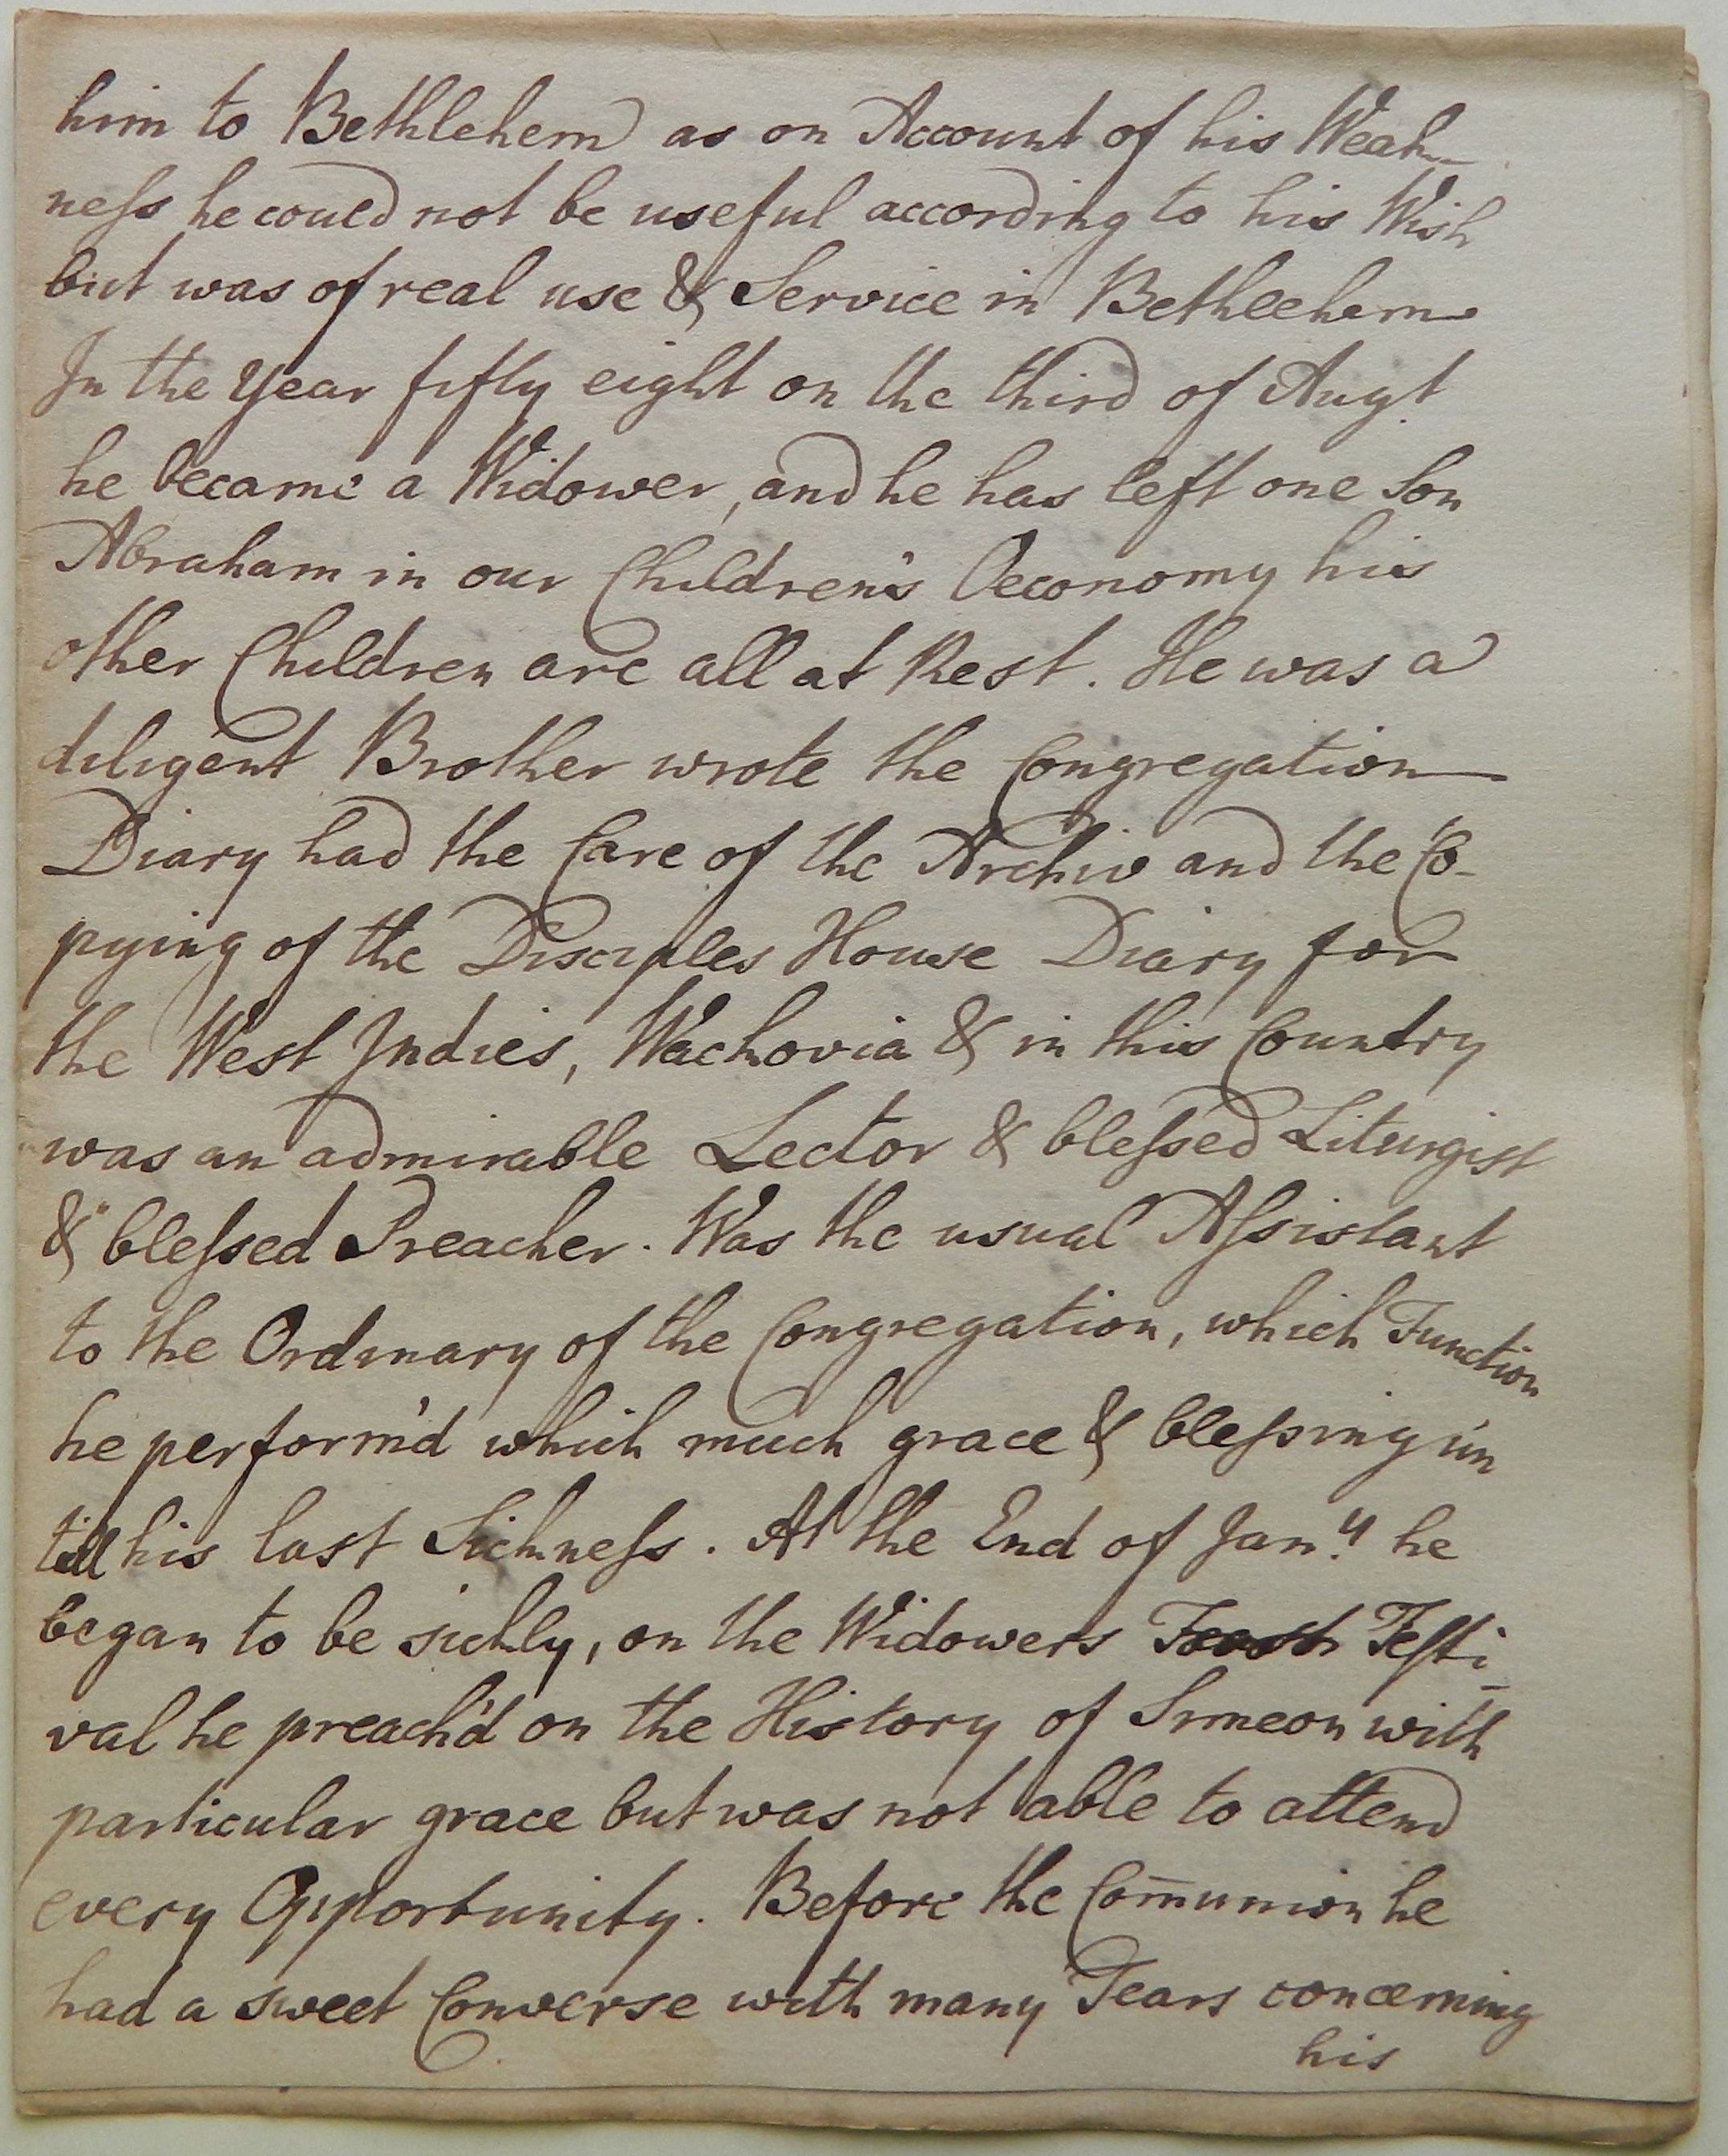 him to Bethlehem as on Account of his Weak-
neſs he could not be useful according to his Wish
but was of real use & Service in Bethlehem
In the Year fifty eight on the third of Augt
he became a Widower, and he has left one Son
Abraham in our Children's Oeconomy his
other Children are all at Rest. He was a
diligent Brother wrote the Congregation
Diary had the Care of the Archiv and the Co-
pying of the Disciples House Diary for
the West Indies, Wachovia & in this Country
was an admirable Lector & bleſsed Liturgist
& bleſsed Preacher. Was the usual Aſsistant
to the Ordinary of the Congregation, which Function
he perform'd which much grace & bleſsing un
till his last Sickneſs. At the End of Jan.y he
began to be sickly, on the Widowers Feſti-
val he preach'd on the History of Simeon with
particular grace but was not able to attend
every Opportunity. Before the Com̄union he
had a sweet Converse with many Tears concerning
his